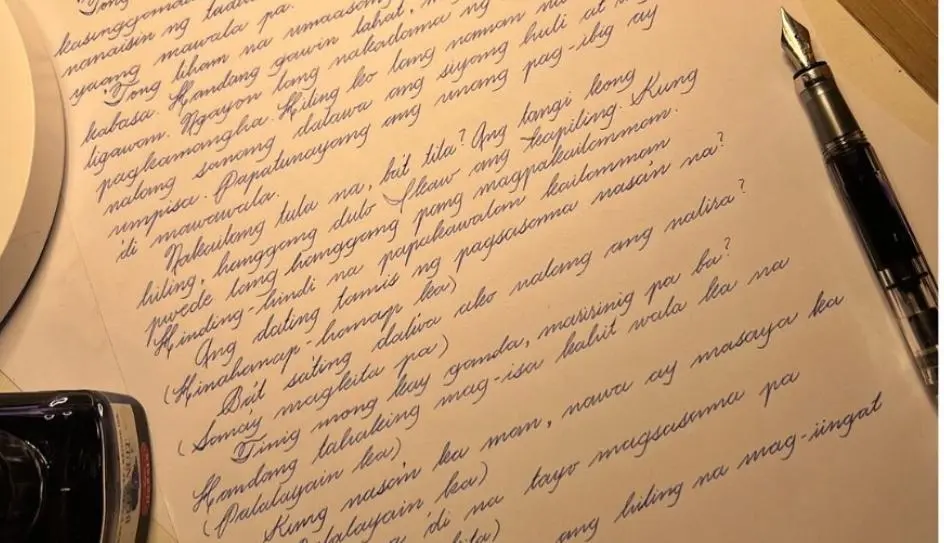 Tong
kasingganda
nanaisin ng
yaong mawala pa.
Tong liham na umaasong
kabasa. Handang gawin lahat,
ligawan. Ngayon lang nakadama ng
pagkamangha. Hiling ko lang naman na
nalang sanang dalawa ang siyang huli at
umpisa. Papatunayang ang unang pag-ibig ay
'di mawawala.
Nakailang tula na, ba't tila? Ang tangi kong
hiling, hanggang dulo Ikaw ang kapiling. Kung
pwede lang hanggang pang magpakailanman.
Hinding-hindi na papakawalan kailanman
Ang dating tamis ng pagsasama nasán na?
(Hinahanap-hanap ka)
Ba't sa'ting dal'wa ako nalang ang natira?
(Sana'y magkita pa)
Tinig mong kay ganda, maririnig pa ba?
Handang tahaking mag-isa kahit wala ka na
(Palalayain ka)
Kung nasán ka man, nawa ay masaya ka
(Palalayain ka)
'di na tayo magsasama pa
ang hiling na mag-iingat